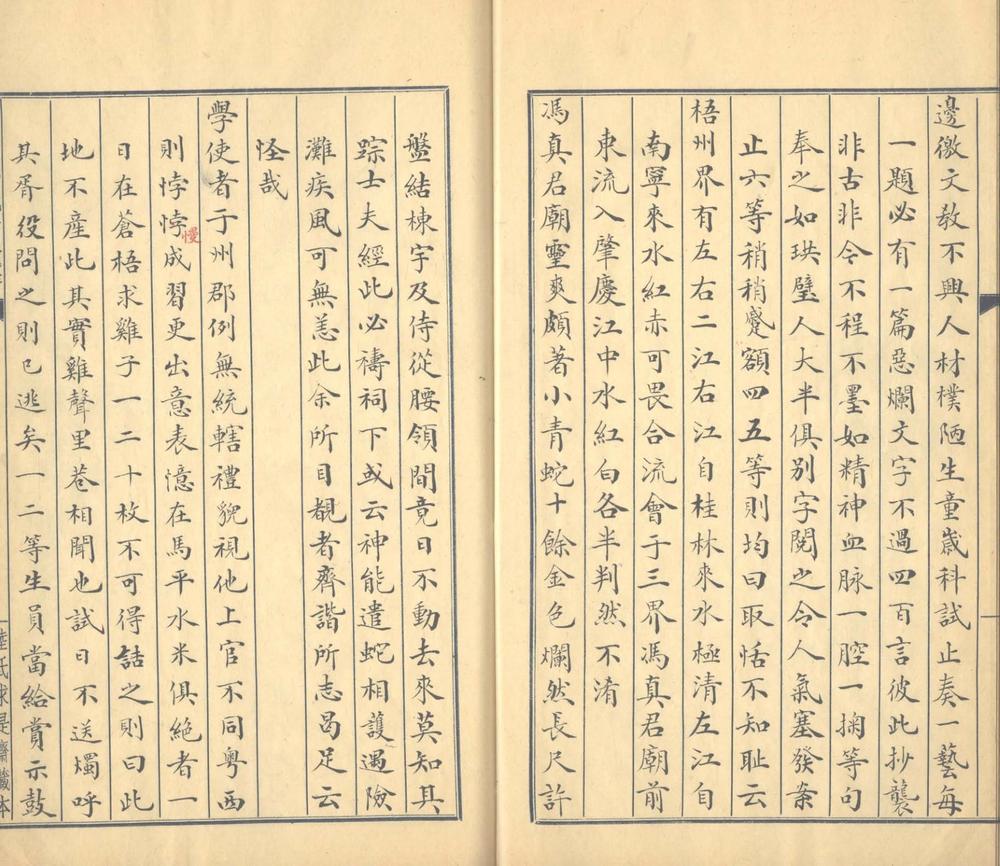 邊徼文教不興人材樸陋生童歲科試止奏一藝每
一題必有一篇惡爛文字不過四百言彼此抄襲
非古非今不程不墨如精神血脉一腔一掬等句
奉之如珙璧人大半俱別字閱之令人氣塞發案
止六等稍稍蹙額四五等則均曰取恬不知耻云
梧州界有左右二江右江自桂林來水極清左江自
南寧來水紅赤可畏合流會于三界馮真君廟前
東流入肇慶江中水紅白各半判然不淆
馮真君廟靈爽頗著小青蛇十餘金色爛然長尺許
盤結棟宇及侍從腰領間竟日不動去來莫知其
踪士夫經此必禱祠下或云神能遣蛇相護遇險
灘疾風可無恙此余所目覩者齊諧所志曷足云
怪哉
學使者于州郡例無統轄禮貌視他上官不同粵西
則悖悖成習更出意表憶在馬平水米俱絕者一
慢
日在蒼梧求雞子一二十枚不可得詰之則曰此
地不產此其實雞聲里巷相聞也試日不送燭呼
其胥役問之則已逃矣一二等生員當給賞示鼓
齋藏本